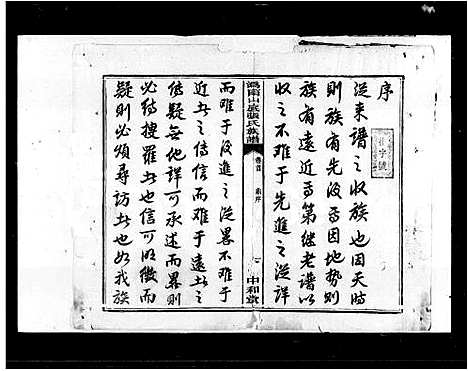 序
從來譜之收族也因天時
則族有先後焉因地勢則
族有遠近焉第继老譜以
收之不难于先進之從詳
山底張氏族譜
卷首
序
中和堂
而难于後進之從畧不难于
近者之傳信而难于遠者之
傳疑無他詳可承述而畧則
必待搜羅者也信可明徵而
疑則必須尋訪者也如我族